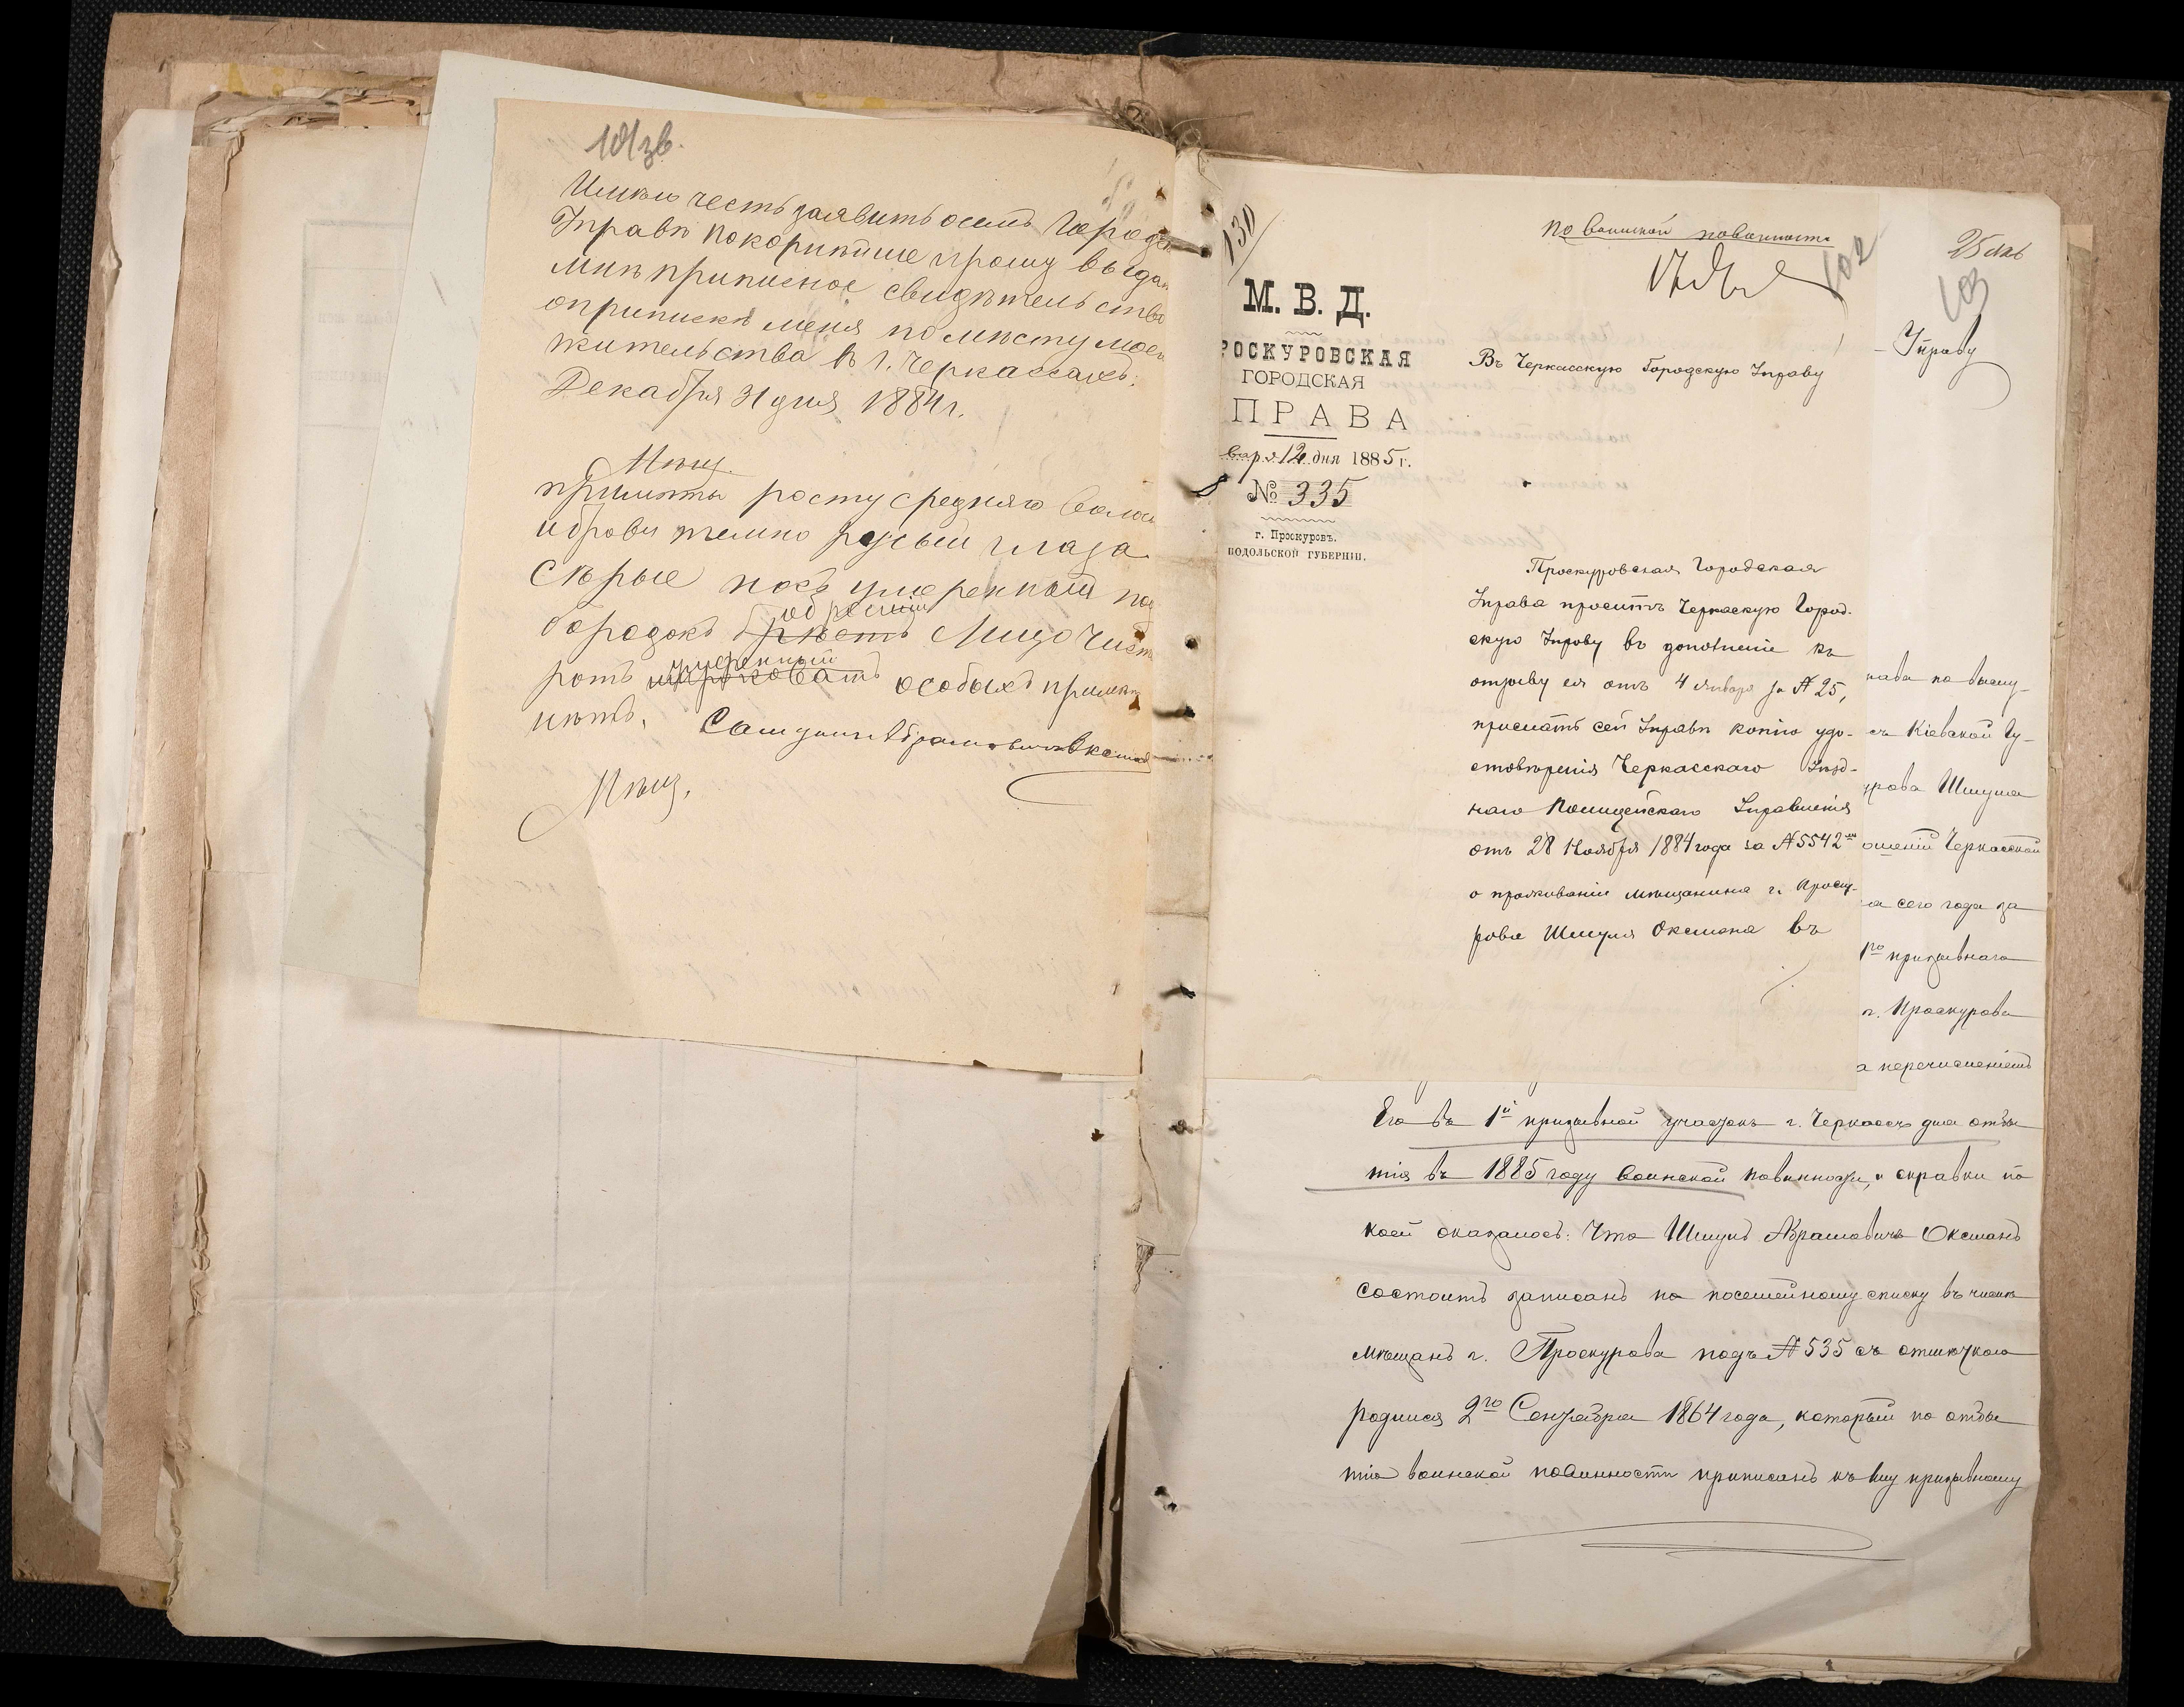 101 зв.
Имѣю честь заявить о семъ Городс
Управѣ покорнѣйше прошу выдат
мнѣ приписное свидѣтельство
о припискѣ меня по мѣсту моего
жительства въ г. Черкассахъ.
Декабря 31 дня 1884 г.
Мѣщ.
примѣты росту средняго волос
и брови темно русыи глаза
сѣрые носъ умеренный под
бородокъ обросшій Лицо чист
ротъ умеренный особыхъ примѣт
нѣтъ.
Мѣщ.
130
По воинской повинности
102
М. В. Д.
РОСКУРОВСКАЯ
ГОРОДСКАЯ
ПРАВА
варя 12 дня 1885 г.
№ 335
г. Проскуровъ.
ПОДОЛЬСКОЙ ГУБЕРНІИ.
Въ Черкасскую Городскую Управу
Проскуровская Городская
Управа проситъ Черкаскую Город-
скую Управу въ дополненіе къ
отзыву ея отъ 4 января за № 25,
прислать сей Управѣ копію удо-
стовѣренія Черкасскаго Уѣзд-
наго Полицейскаго Управленія
отъ 28 Ноября 1884 года за № 5542
о проживаніи мѣщанина г. Проску-
рова Шмуля Оксмана въ
103
Управу
рава по выслу-
съ Кіевской Гу-
урова Шмуля
ошеніи Черкасской
ла сего года за
1го призывнаго
г. Проскурова
а перечисленіемъ
Его въ 1й призывной участокъ г. Черкассъ для отбы
тія въ 1885 году воинской повинности, и справки по
коей оказалось: Что Шмуль Абрамовичъ Оксманъ
состоитъ записанъ по посемейному списку въ числѣ
мѣщанъ г. Проскурова подъ № 535 съ отмѣткою
родился 2го Сентября 1864 года, который по отбы
тію воинской повинности приписанъ къ 1му призывному